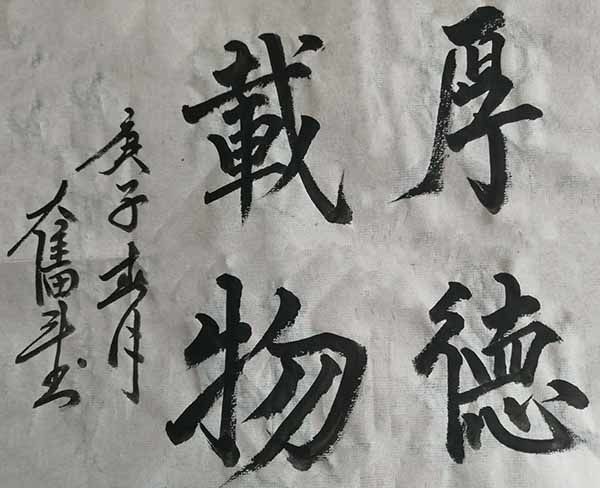 厚德
載物
庚子春月
奮斗书